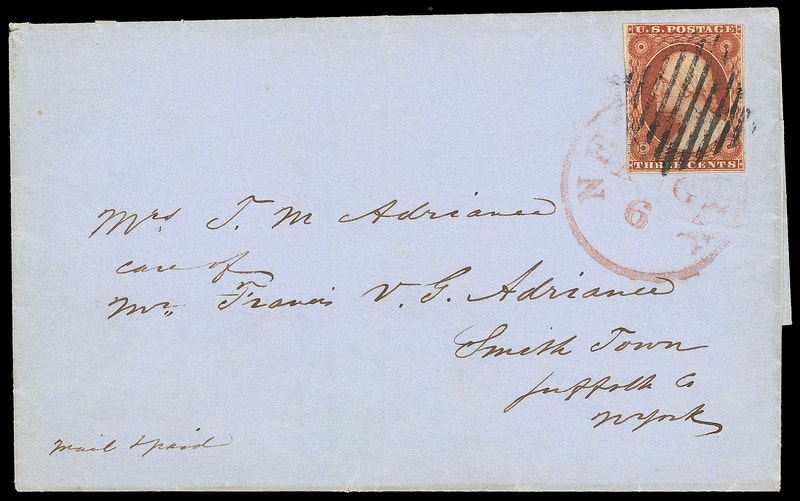 U.S. POSTAGE
THREE CENTS
6
Mrs T. M Adriance
care of
Mr. Francis V. G. Adriance
Smith Town
Suffolk Co
NYork
Mail & paid